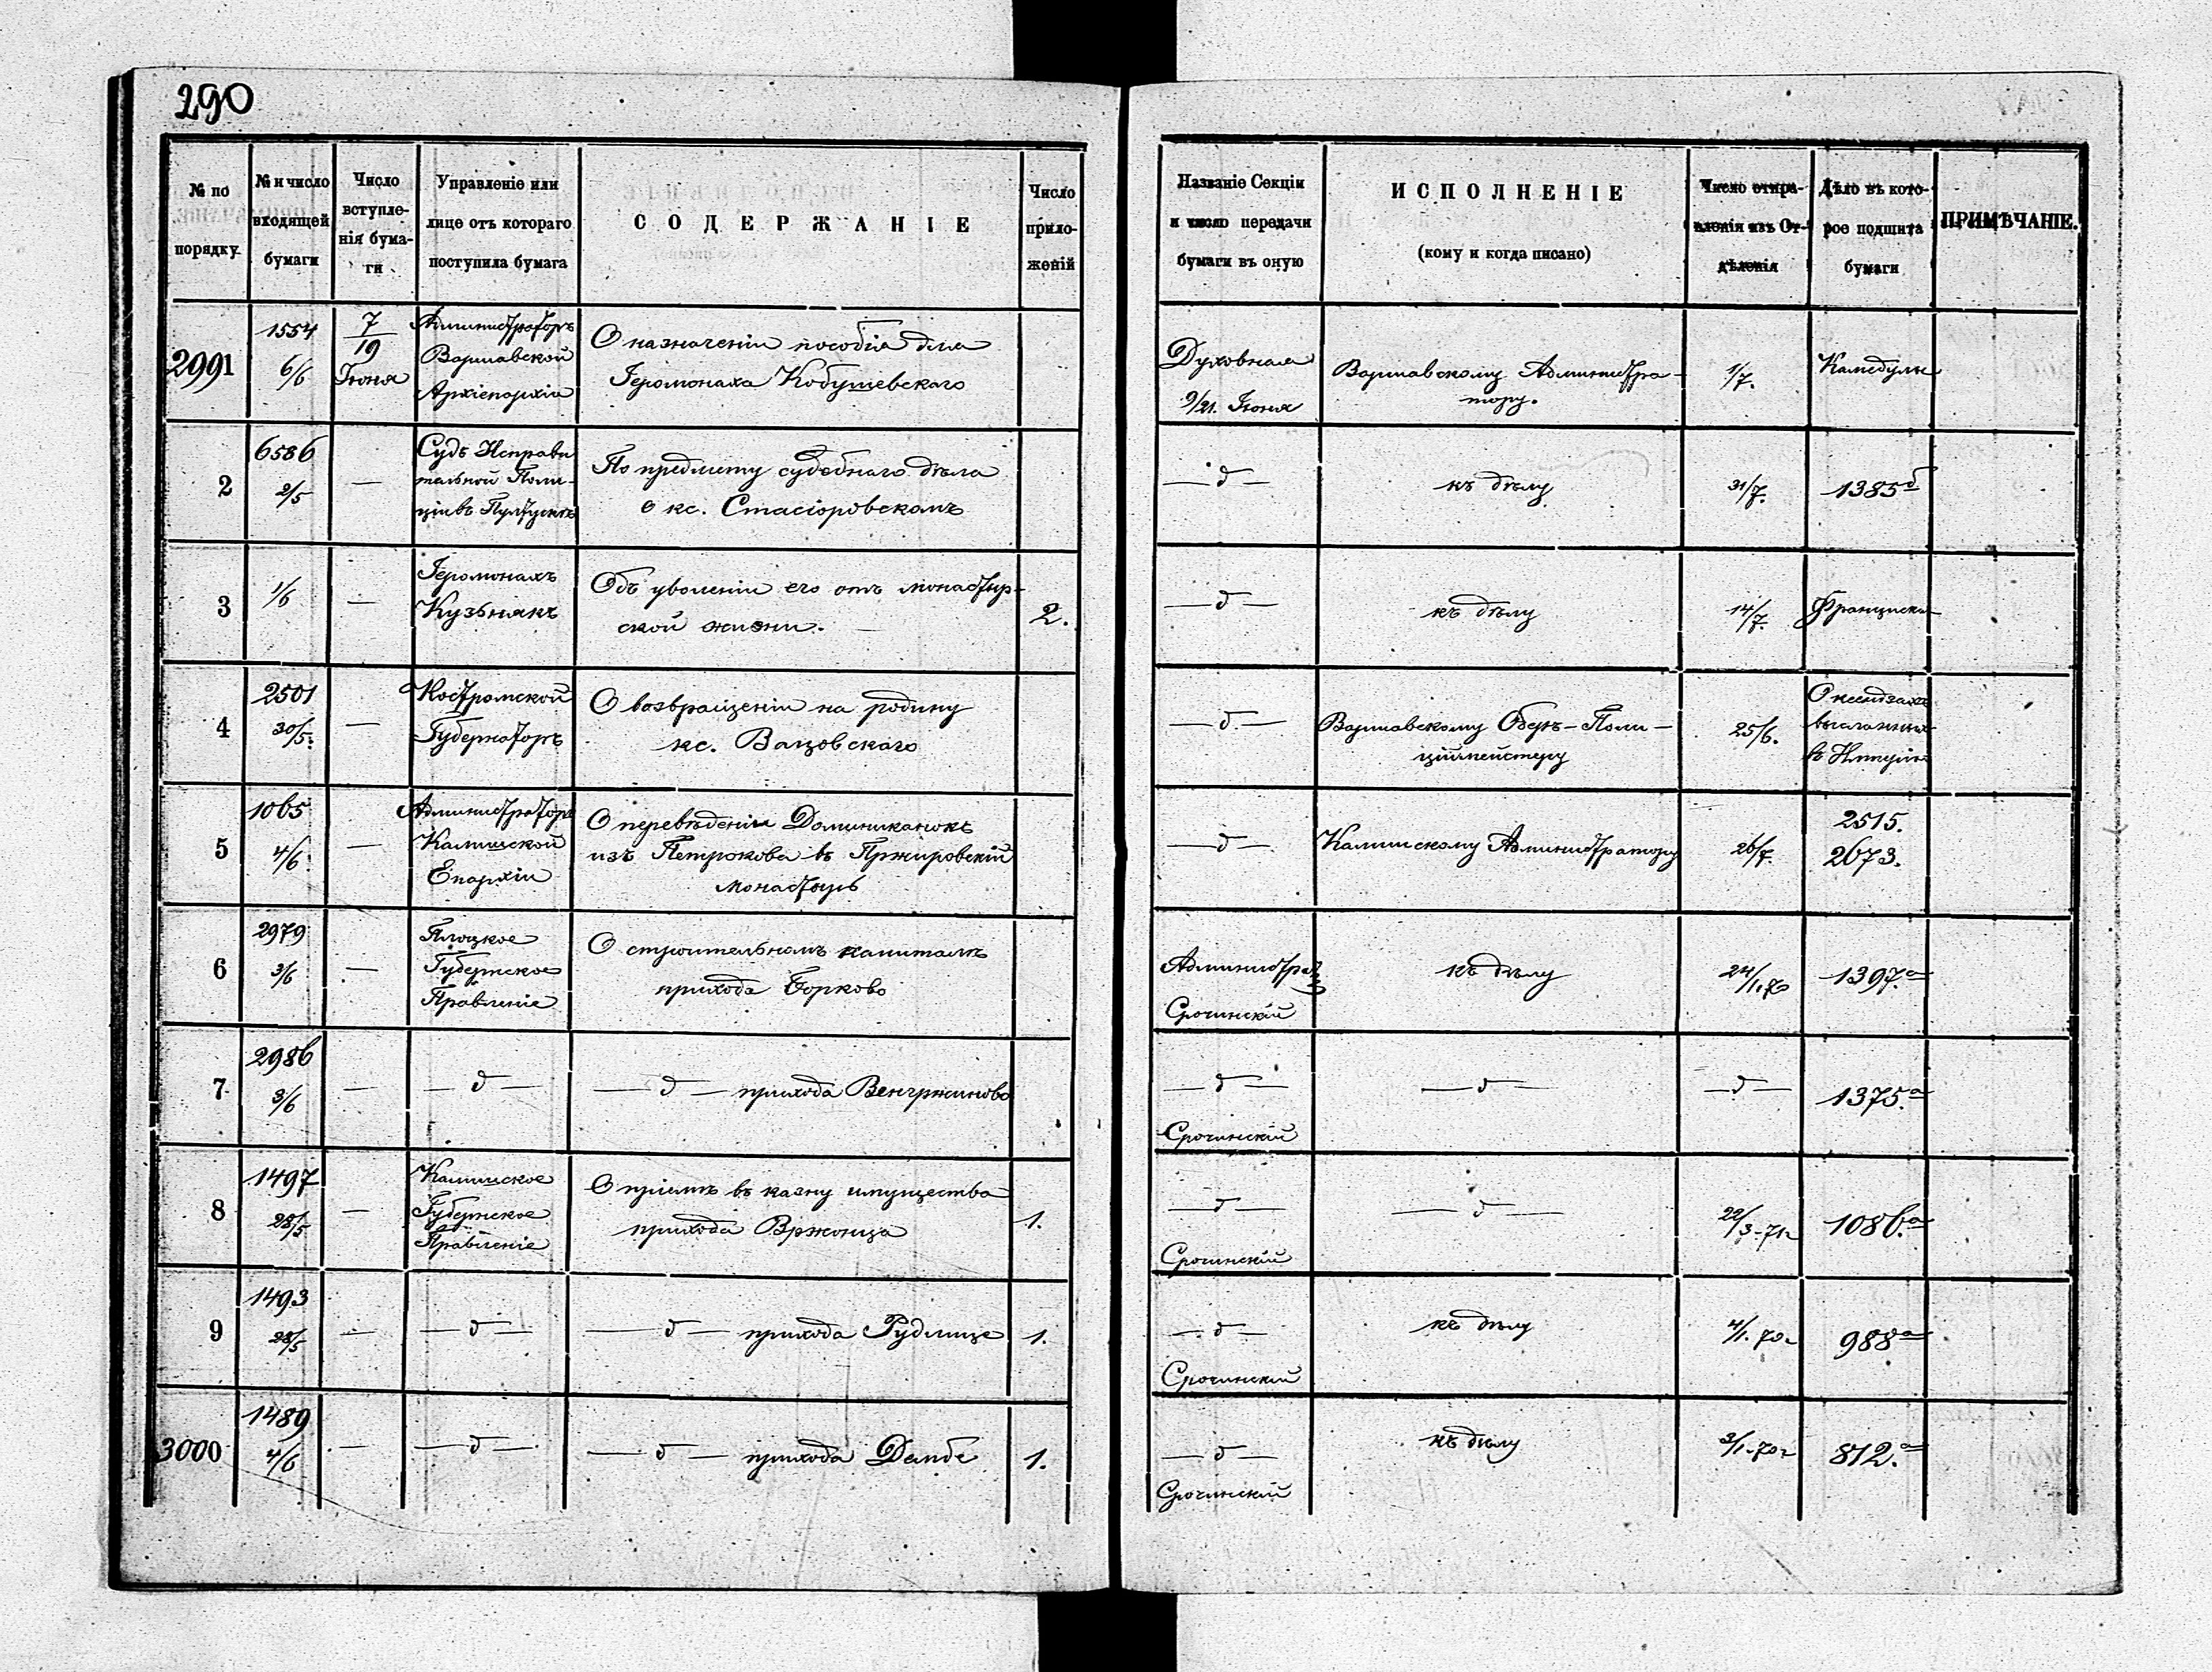 290
№ по порядку.
№ и число входящей бумаги
Число вступле-
нія бума-
ги
Управленіе или
лице отъ котораго
поступила бумага
СОДЕРЖАНІЕ
Число
прило-
женій
Названіе Секціи
и число передачи
бумаги въ оную
ИСПОЛНЕНІЕ
(кому и когда писано)
Число отпра-
вленія изъ От-
дѣленія
Дѣло въ кото-
рое подшита
бумаги
ПРИМѢЧАНІЕ.
2991
1554
6/6
7/19
Іюня
Администраторъ
Варшавской
Архіепархіи
О назначеніи пособія для
Іеромонаха Кобушевскаго
Духовная
9/21. Іюня
Варшавскому Администра-
тору.
1/7.
Камедулы
2
6586
2/5
—
Судъ Исправи
тельной Поли-
ціи въ Пултускѣ
По предмету судебнаго дѣла
о кс. Стасіоровскомъ
— д —
къ дѣлу
31/7.
1385 б
3
1/6
—
Іеромонахъ
Кузьнякъ
Объ уволеніи его отъ монастыр-
ской жизни. —
2.
— д —
къ дѣлу
14/7.
Францискан
4
2501
30/5.
—
Костромской
Губернаторъ
О возвращеніи на родину
кс. Вацовскаго
— д. —
Варшавскому Оберъ-Поли-
ційместеру
25/6.
О ксендзахъ
высланныхъ
въ Имперію
5
1065
4/6.
—
Администраторъ
Калишской
Епархіи
О перевѣденіи Доминиканокъ
изъ Петрокова въ Пржировскій
монастырь
— д —.
Калишскому Администратору
26/7.
2515.
2673.
6
2979
3/6
—
Плоцкое
Губернское
Правленіе
О строительномъ капиталѣ
прихода Борково
Администрат
Срочинскій
къ дѣлу
24/1.70
1397. а
7
2986
3/6
—
— д —
— д — прихода Венгржиново
— д —
Срочинскій
— д —
— д —
1375. а
8
1497
28/5
—
Калишское
Губернское
Правленіе
О пріемѣ въ казну имущества
прихода Вржонца
1.
— д —
Срочинскій
— д —
22/3-71 г
1086. а
9
1493
28/5
—
— д —
— д — прихода Рудлице
1.
— д —
Срочинскій
къ дѣлу
4/1. 70 г
988 а
3000
1489
4/6
—
— д —.
— д — прихода Дембе
1.
— д —
Срочинскій
къ дѣлу
3/1-70 г
812. а